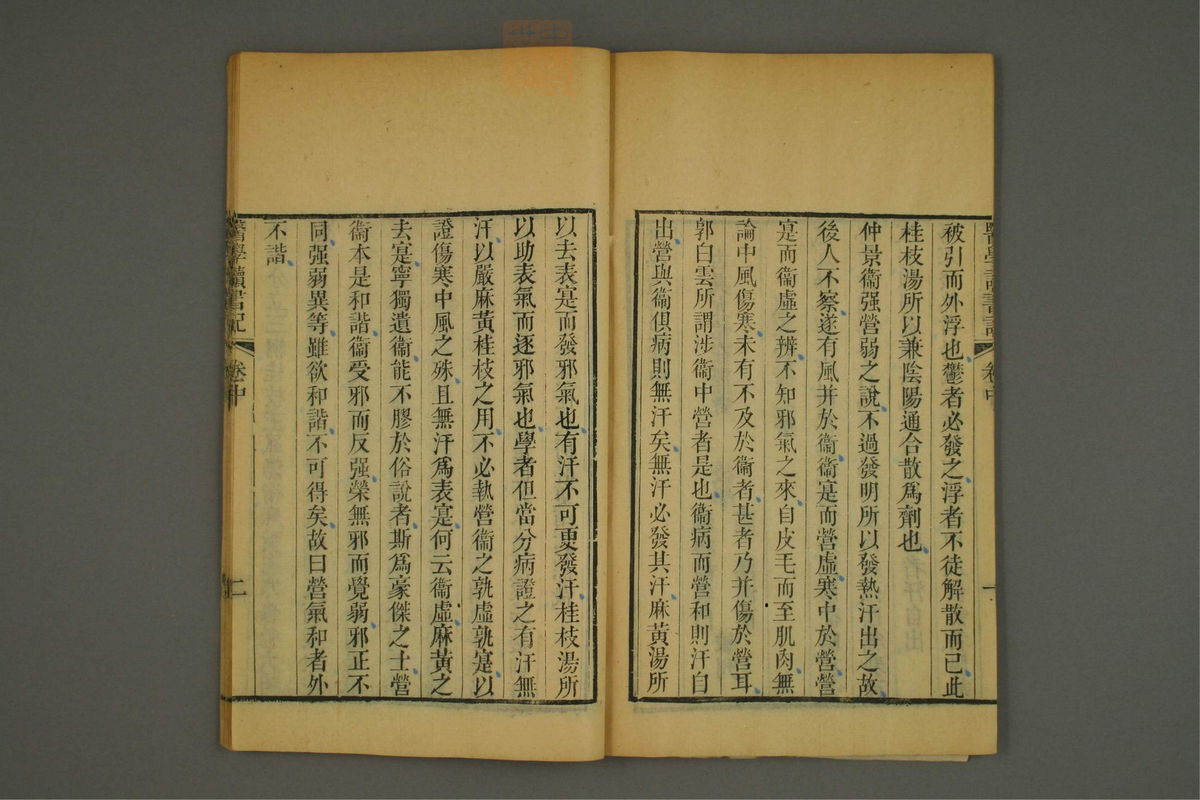 被引而外浮也鬱者必發之浮者不徒解散而已此
桂枝湯所以兼陰陽通合散爲劑也
仲景衞强營弱之說不過發明所以發熱汗出之故
後人不察遂有風并於衞衞寔而營虛寒中於營營
寔而衞虛之辨不知邪氣之來自皮毛而至肌肉無
論中風傷寒未有不及於衞者甚者乃并傷於營耳
郭白雲所謂涉衞中營者是也衞病而營和則汗自
出營與衞俱病則無汗矣無汗必發其汗麻黃湯所
以去表寔而發邪氣也有汗不可更發汗桂枝湯所
以助表氣而逐邪氣也學者但當分病證之有汗無
汗以嚴麻黃桂枝之用不必執營衞之孰虛孰寔以
證傷寒中風之殊且無汗爲表寔何云衞虛麻黃之
去寔寧獨遺衞能不膠於俗說者斯爲豪傑之士營
衞本是和諧衞受邪而反强榮無邪而覺弱邪正不
同强弱異等雖欲和諧不可得矣故曰營氣和者外
不諧
醫學讀書記
卷中
二